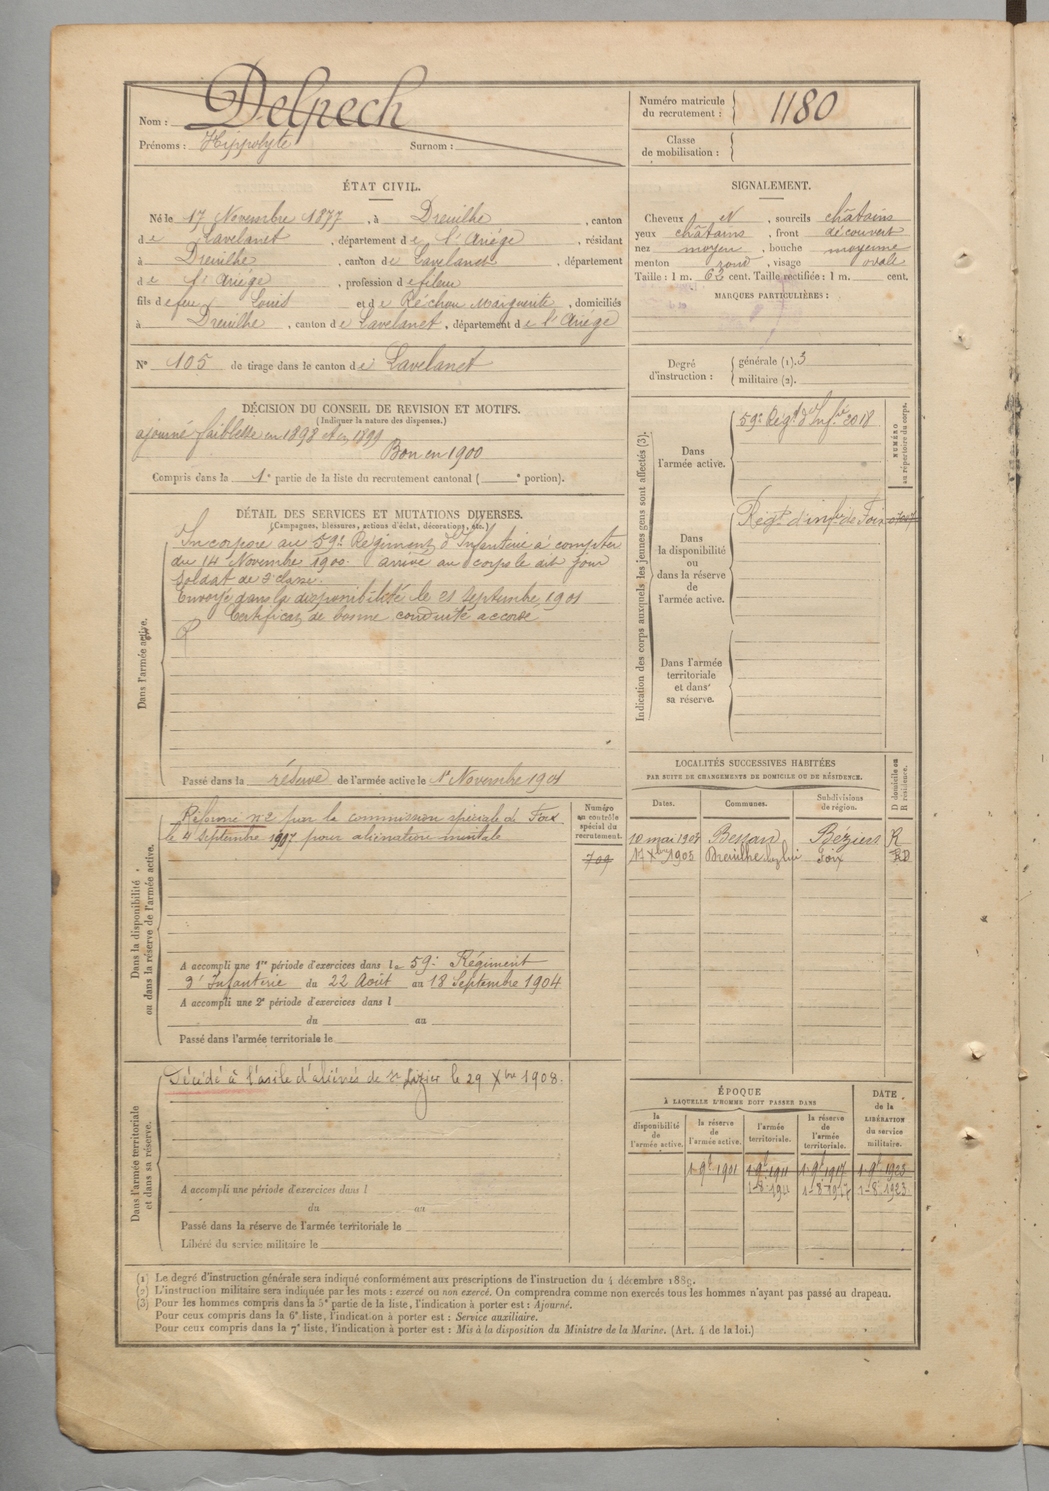 Nom : Delpech
Prénoms : Hippolyte Surnom :
Numéro matricule du recrutement : 1180
Classe de mobilisation :
ÉTAT CIVIL.
Né le 17 Novembre 1877, à Dreuilhe, canton
de Lavelanet, département de l'Ariége, résidant
à Dreuilhe, canton de Lavelanet, département
de l'Ariége, profession de fileur
fils de feu Louis et de Réchou Marguerite, domiciliés
à Dreuilhe, canton de Lavelanet, département de l'Ariége
N° 105 de tirage dans le canton de Lavelanet
SIGNALEMENT.
Cheveux et, sourcils châtains
yeux châtains, front découvert
nez moyen, bouche moyenne
menton rond, visage ovale
Taille : 1 m. 62 cent. Taille rectifiée : 1 m. cent.
MARQUES PARTICULIÈRES :
Degré d'instruction : générale (1). 3
militaire (2).
DÉCISION DU CONSEIL DE REVISION ET MOTIFS.
(Indiquer la nature des dispenses.)
ajourné faiblesse en 1898 et en 1899
Bon en 1900
Compris dans la 1e partie de la liste du recrutement cantonal ( e portion).
DÉTAIL DES SERVICES ET MUTATIONS DIVERSES.
(Campagnes, blessures, actions d'éclat, décorations, etc.)
Dans l'armée active.
Incorporé au 59e Régiment d'Infanterie à compter
du 14 Novembre 1900. arrivé au corps le dit jour
Soldat de 2e classe.
Envoyé dans la disponibilité le 21 Septembre 1901
Certificat de bonne conduite accordé
R
Passé dans la réserve de l'armée active le 1er Novembre 1901
Indication des corps auxquels les jeunes gens sont affectés (3).
NUMÉRO au répertoire du corps.
Dans l'armée active.
59e Régt d'Infie 2018
Dans la disponibilité ou dans la réserve de l'armée active.
Régt d'infie de Foix
Dans l'armée territoriale et dans sa réserve.
LOCALITÉS SUCCESSIVES HABITÉES
PAR SUITE DE CHANGEMENTS DE DOMICILE OU DE RÉSIDENCE.
D domicile ou R résidence.
Dates. Communes. Subdivisions de région.
10 mai 1903 Bessan Béziers R
17 Xbre 1903 Dreuilhe Foix RD
Dans la disponibilité ou dans la réserve de l'armée active.
Numéro au contrôle spécial du recrutement.
709
Réformé n° 2 par la commission spéciale de Foix
le 4 septembre 1907 pour aliénation mentale
A accompli une 1re période d'exercices dans le 59e Régiment
d'Infanterie du 22 Août au 18 Septembre 1904
A accompli une 2e période d'exercices dans l
du au
Passé dans l'armée territoriale le
Dans l'armée territoriale et dans sa réserve.
Décédé à l'asile d'aliénés de St Lizier le 29 Xbre 1908.
A accompli une période d'exercices dans l
du au
Passé dans la réserve de l'armée territoriale le
Libéré du service militaire le
ÉPOQUE
À LAQUELLE L'HOMME DOIT PASSER DANS
DATE de la LIBÉRATION du service militaire.
la disponibilité de l'armée active. la réserve de l'armée active. l'armée territoriale. la réserve de l'armée territoriale.
1-9bre 1901 1-9bre 1911 1-9bre 1917 1-9bre 1923
1-8-1911 1-8-1917 1-8-1923
(1) Le degré d'instruction générale sera indiqué conformément aux prescriptions de l'instruction du 4 décembre 1889.
(2) L'instruction militaire sera indiquée par les mots : exercé ou non exercé. On comprendra comme non exercés tous les hommes n'ayant pas passé au drapeau.
(3) Pour les hommes compris dans la 5e partie de la liste, l'indication à porter est : Ajourné.
Pour ceux compris dans la 6e liste, l'indication à porter est : Service auxiliaire.
Pour ceux compris dans la 7e liste, l'indication à porter est : Mis à la disposition du Ministre de la Marine. (Art. 4 de la loi.)